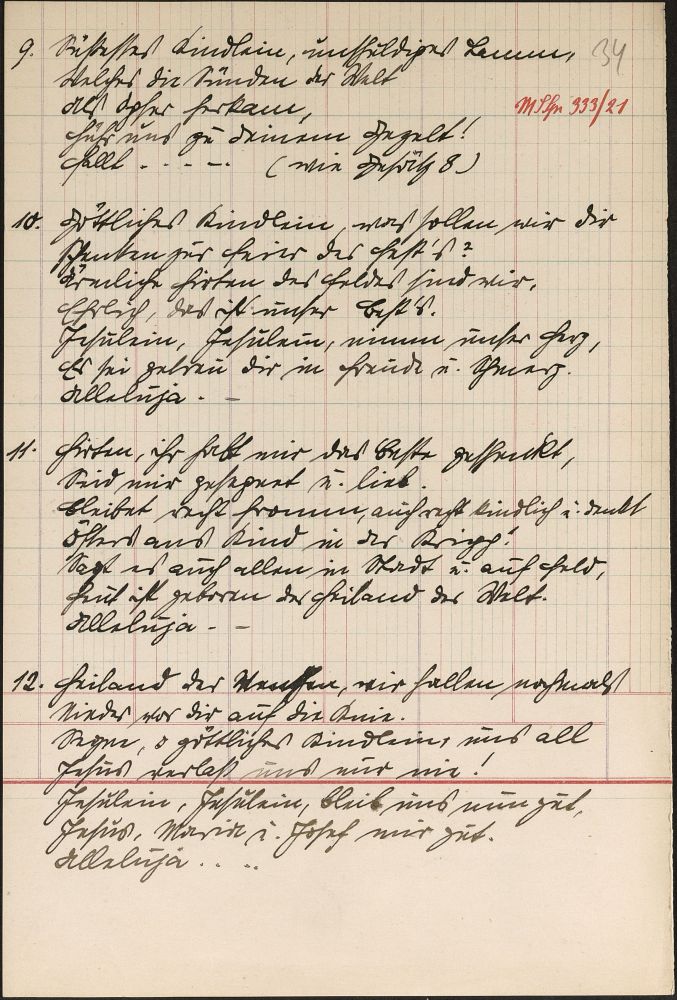 9. Süßestes Kindlein, unschuldiges Lamm, 34
Welches die Sünden der Welt
Als Opfer herkam, MShn 333/21
Führ uns zu deinem Gezelt!
Fallt . - - - . (wie Gesätz 8)
10. Göttliches Kindlein, was sollen wir dir
Schenken zur Feier des Fest's?
Ärmliche Hirten des Feldes sind wir,
Ehrlich, das ist unser Best's.
Jesulein, Jesulein, nimm unser Herz,
Es sei getreu dir in Freude u. Schmerz.
Alleluja . -
11. Hirten, ihr habt mir das Beste geschenkt,
Seid mir gesegnet u. lieb.
Bleibet recht fromm, auch recht kindlich u. denkt
Öfters ans Kind in der Kripp!
Sagt es auch allen in Stadt u. auf Feld,
Heut ist geboren der Heiland der Welt.
Alleluja - -
12. Heiland der Menschen, wir fallen nochmals
Nieder vor dir auf die Knie.
Segne, o göttliches Kindlein, uns all
Jesus verlaß uns nur nie!
Jesulein, Jesulein, bleib uns nun gut,
Jesus, Maria u. Josef mir gut.
Alleluja . . ..